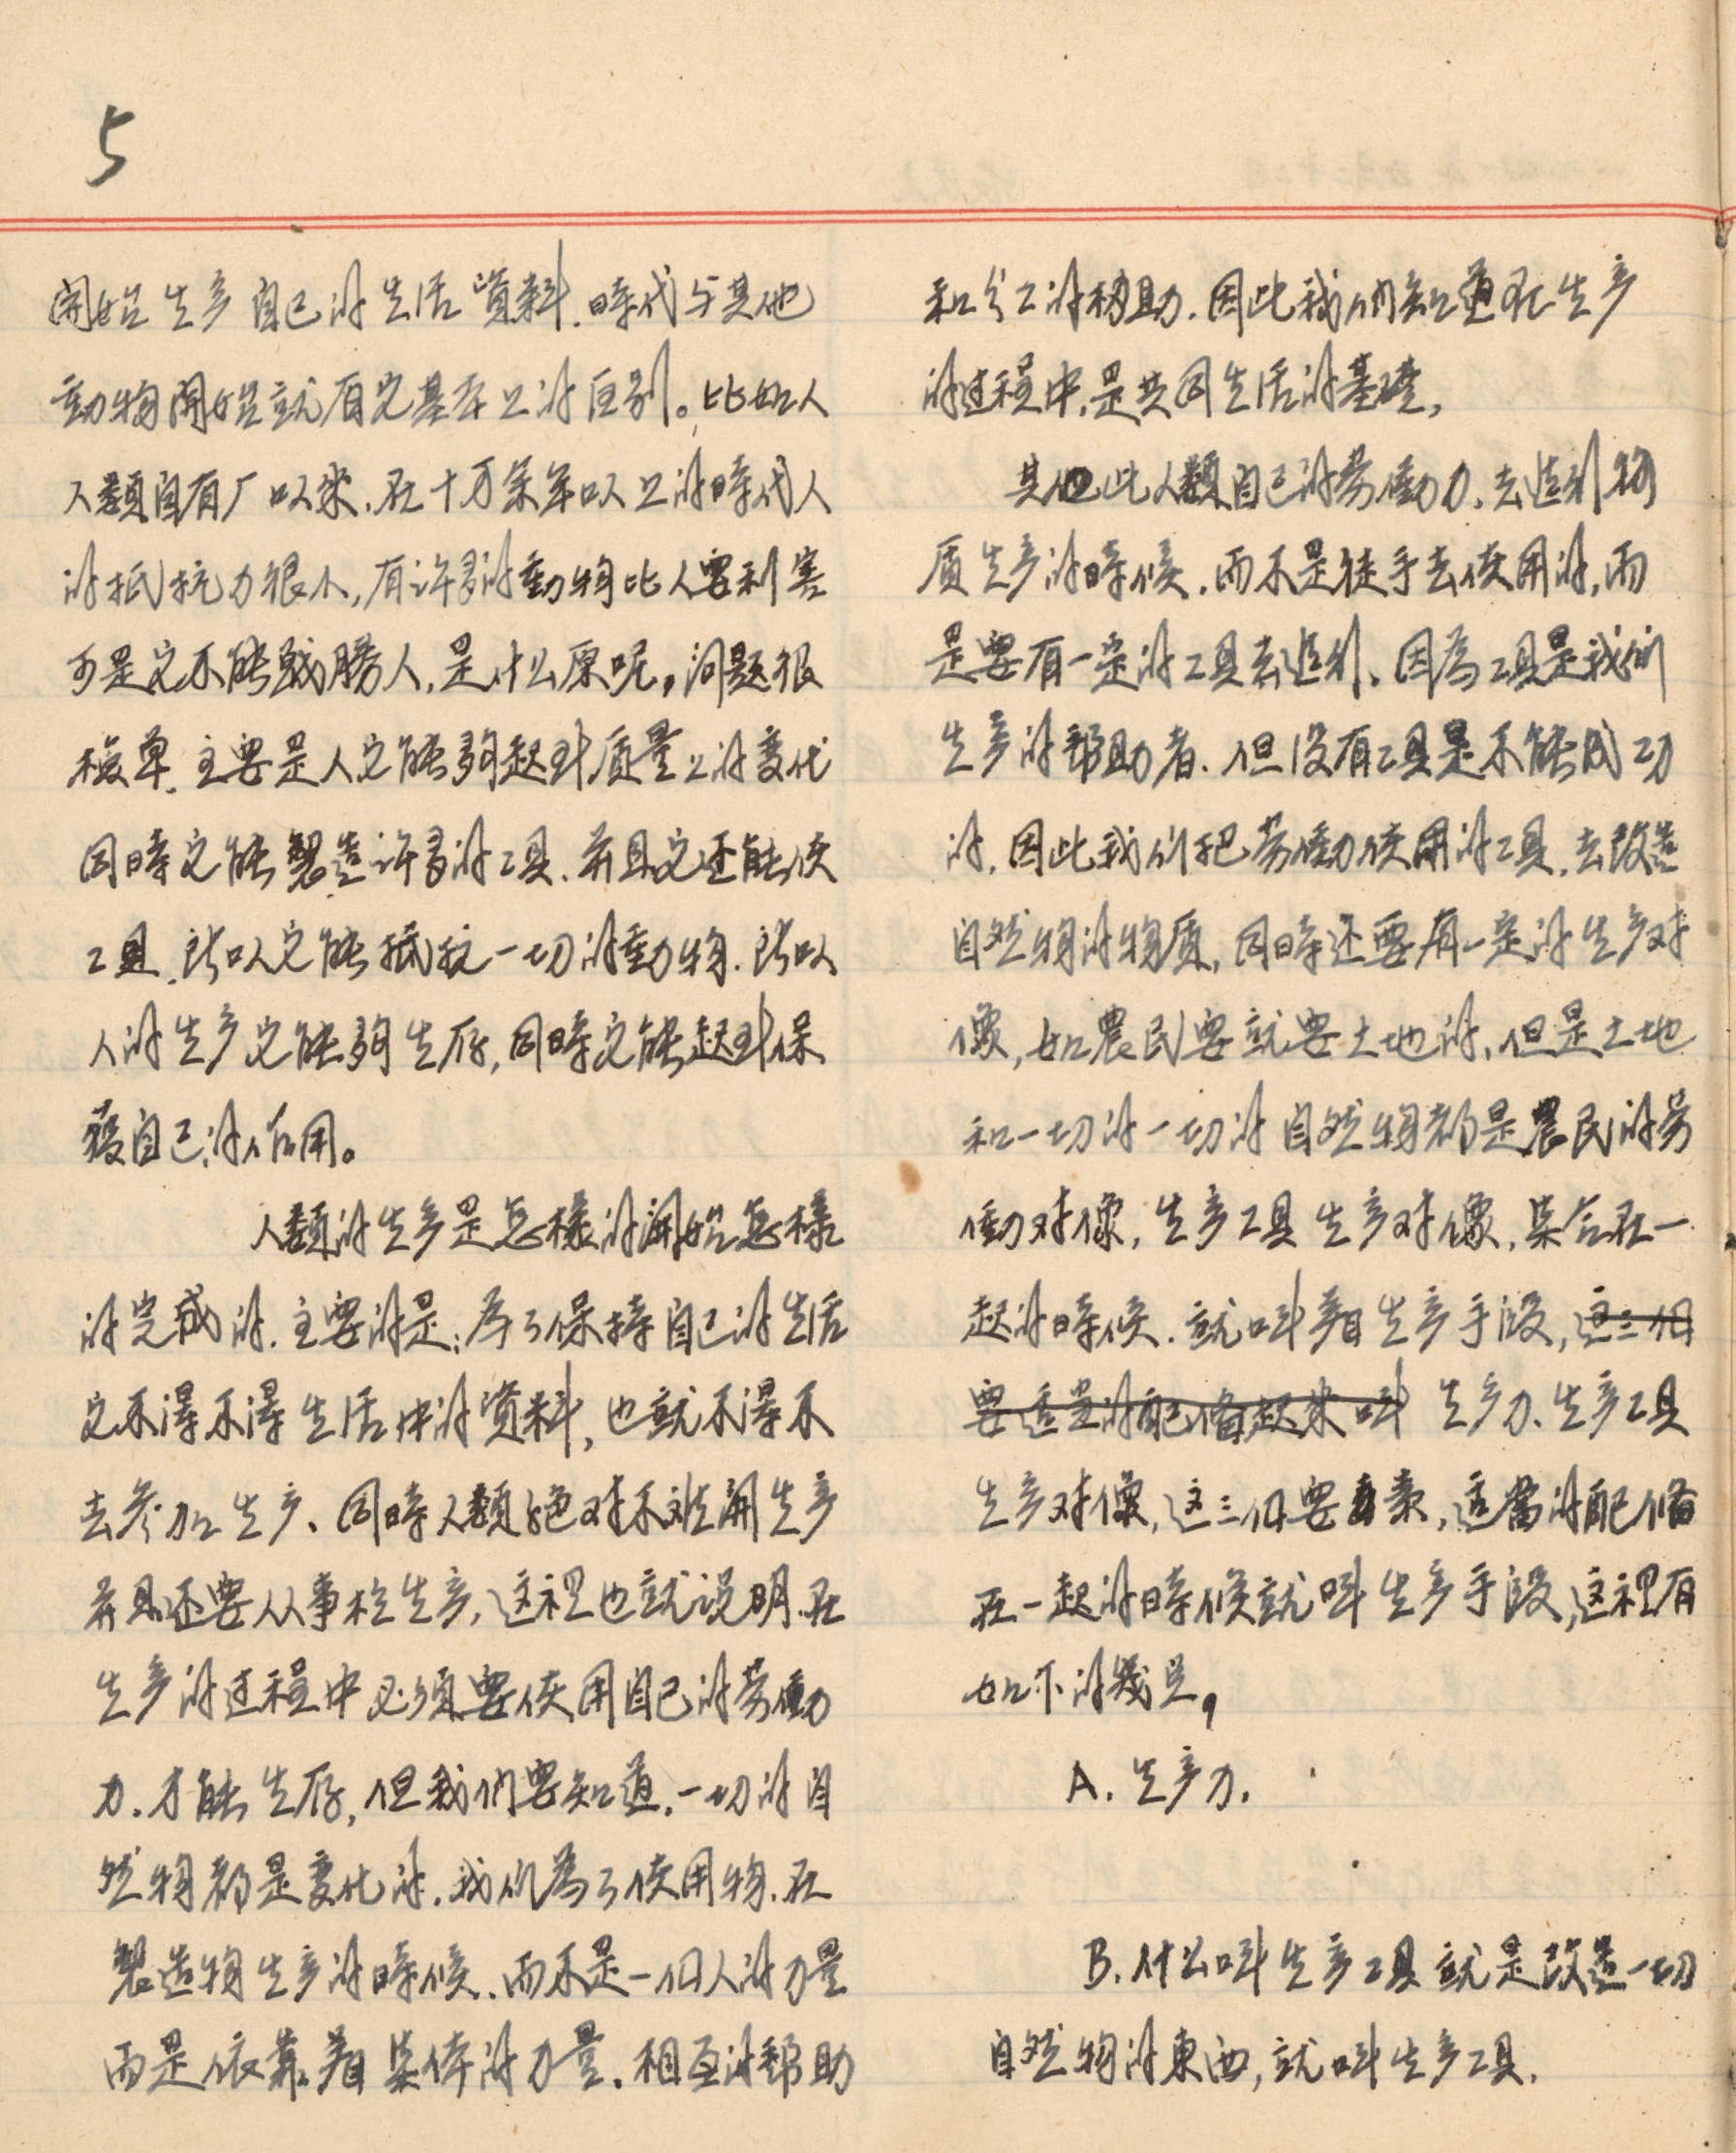 5
開始生产自己的生活資料.時代与其他
動物開始就有它基本上的区别。比如人
人類自有厂以来.在十万余年以上的時代人
的抵抗力很小,有许多的動物比人要利害
可是它不能战勝人,是什么原呢,问题很
檢单.主要是人它能夠起到质量上的变化
同時它能製造许多的工具.并且它还能使
工具.所以它能抵抗一切的動物.所以
人的生产它能夠生存,同時它能起到保
護自己的作用。
人類的生产是怎樣的開始怎樣
的完成的.主要的是:为了保持自己的生活
它不得不得生活中的資料,也就不得不
去参加生产、同時人類绝对不难開生产
并且还要从事於生产,这裡也就说明.在
生产的过程中必须要使用自己的劳働
力.才能生存,但我們要知道.一切的自
然物都是变化的.我们為了使用物.在
製造物生产的時候.而不是一個人的力量
而是依靠着集体的力量.相互的帮助
和分工的移助.因此我们知道在生产
的过程中.是共同生活的基礎,
其他此人類自己的劳働力.去造到物
质生产的時候.而不是徒手去使用的,而
是要有一定的工具去造到、因為工具是我们
生产的帮助者.但没有工具是不能成功
的.因此我们把劳働使用的工具.去改造
自然物的物质,同時还要有一定的生产对
像,如農民要就要土地的、但是土地
和一切的一切的自然物都是農民的劳
働对像,生产工具生产对像,集合在一
起的時候.就叫着生产手段,这三個
要适当的配備起来叫生产力、生产工具
生产对像,这三個要素,适當的配備
在一起的時候就叫生产手段,这裡有
如下的幾点,
A.生产力.
B.什么叫生产工具就是改造一切
自然物的東西,就叫生产工具.